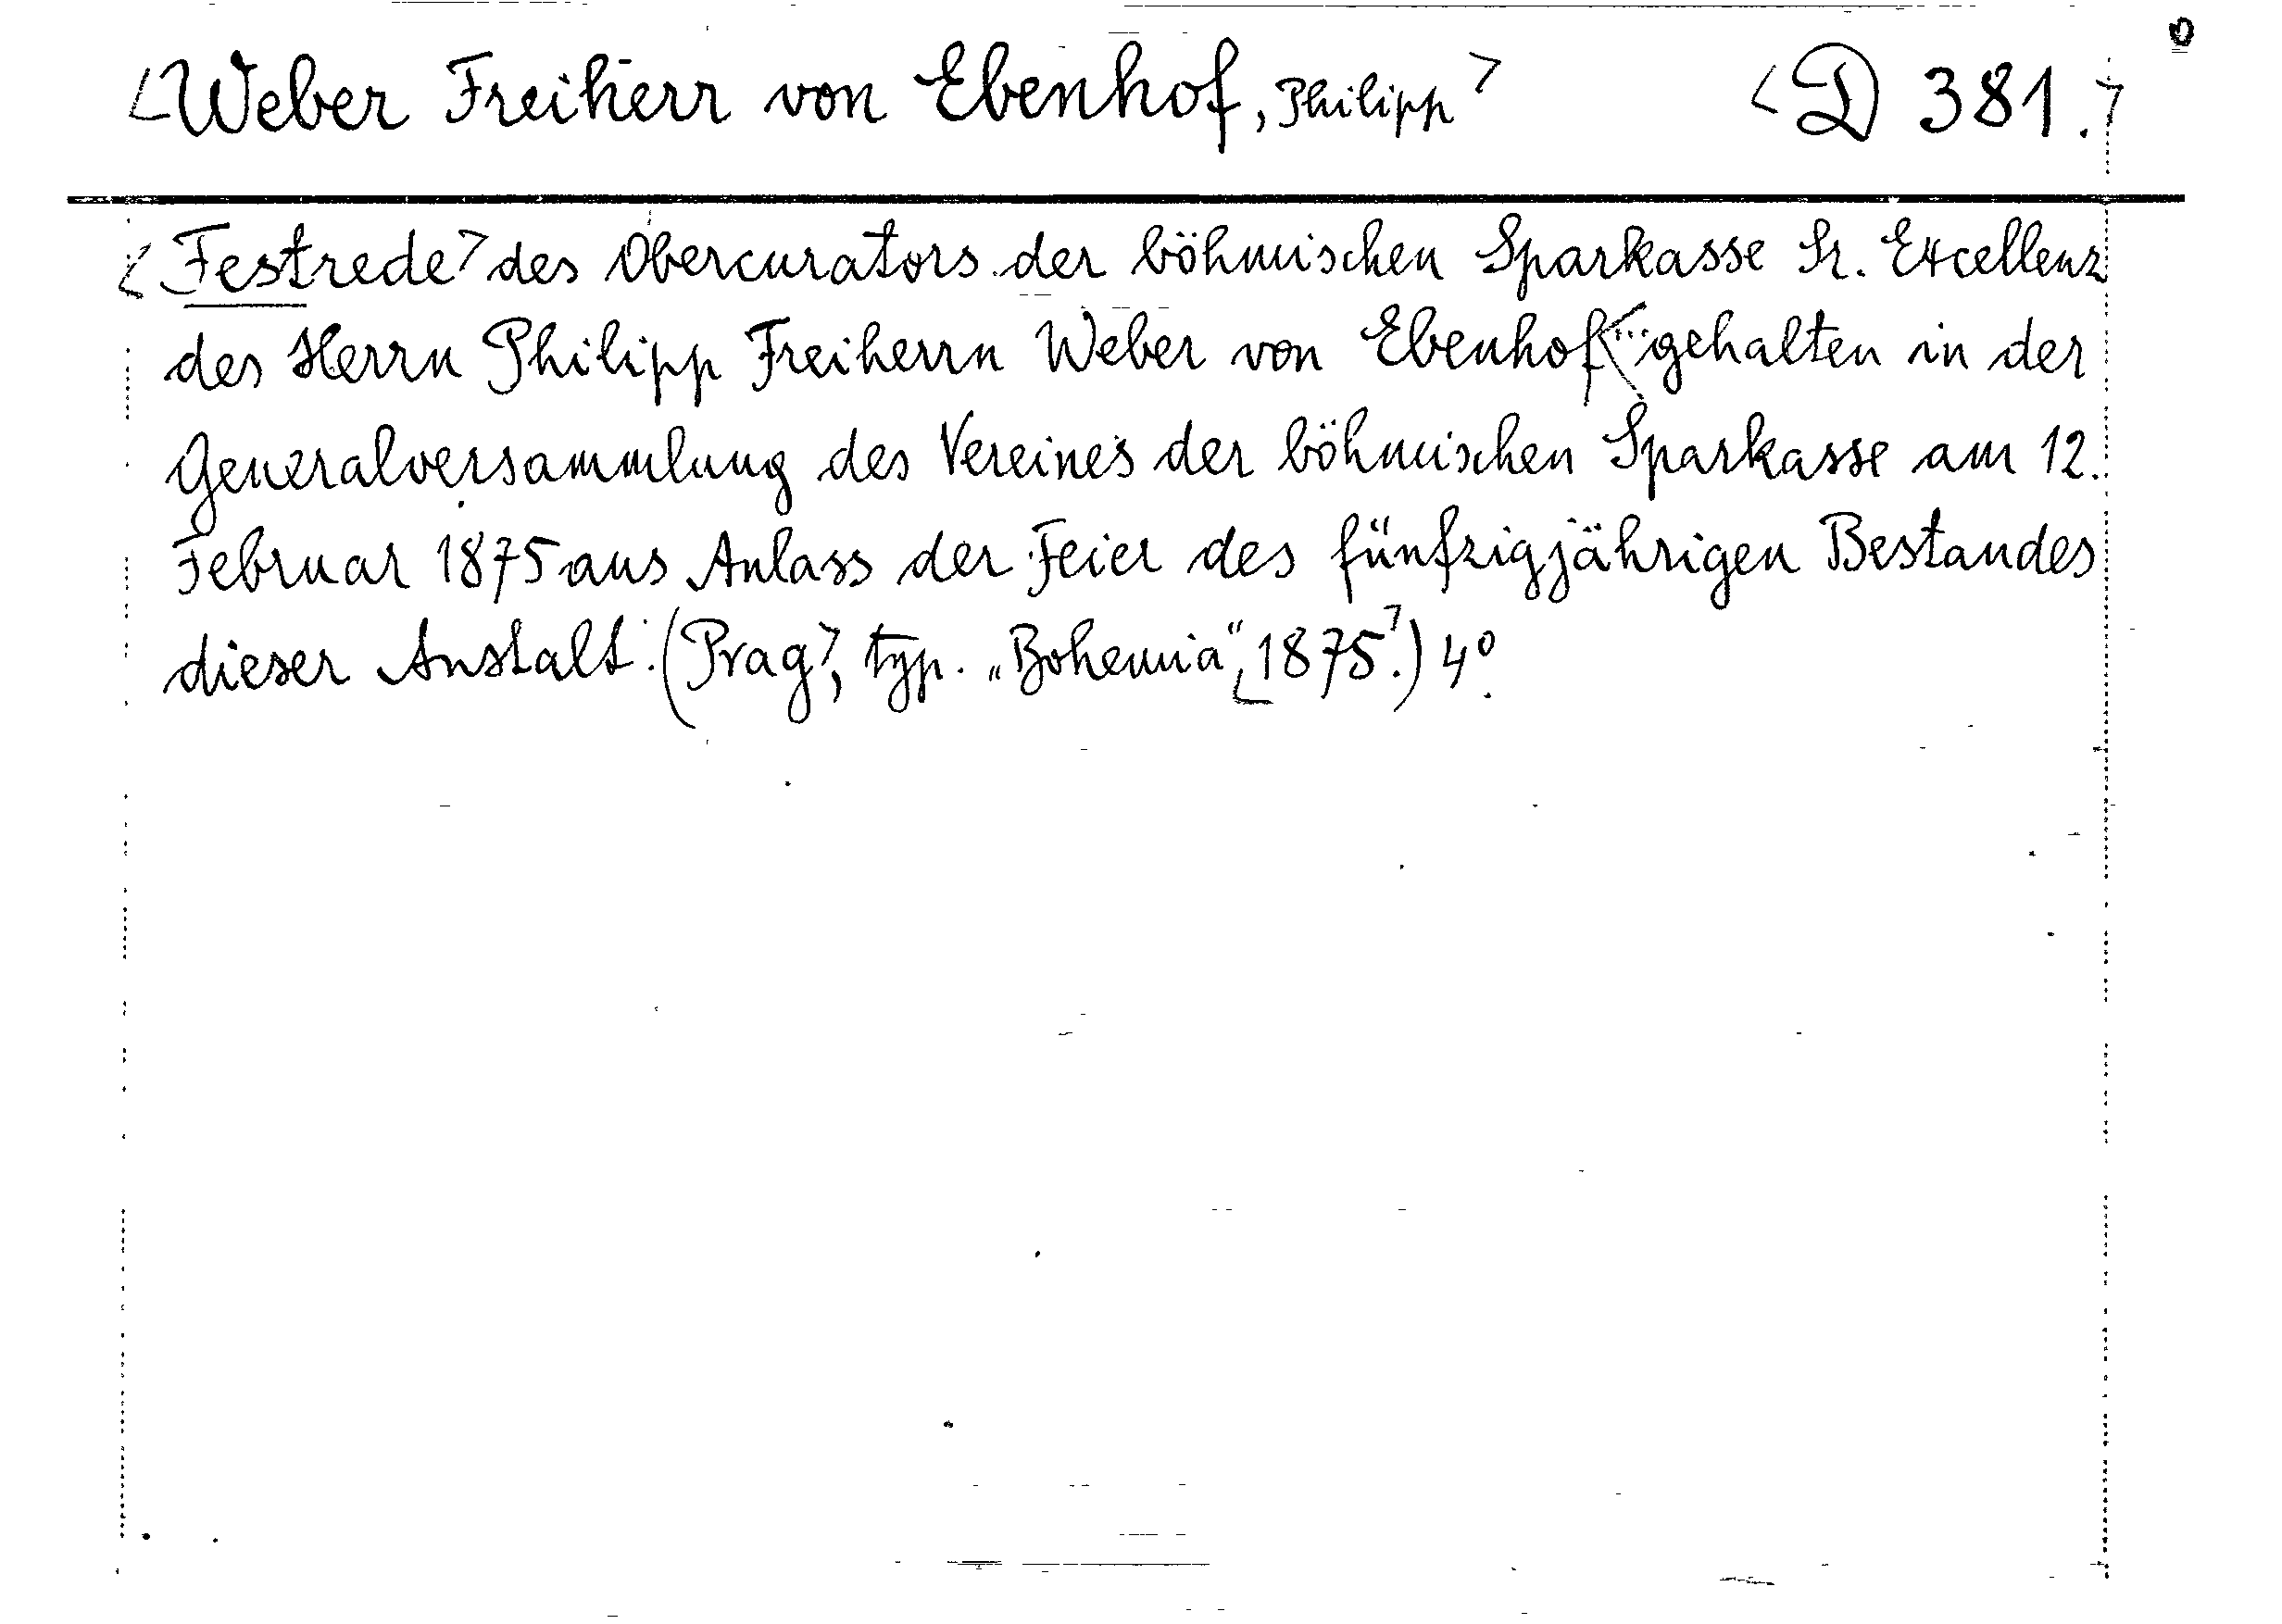 <Weber Freiherr von Ebenhof, Philipp> <D 381.>
<Festrede> des Obercurators der böhmischen Sparkasse Sr. Excellenz
des Herrn Philipp Freiherrn Weber von Ebenhof<...gehalten in der
Generalversammlung des Vereines der böhmischen Sparkasse am 12.
Februar 1875 aus Anlass der Feier des fünfzigjährigen Bestandes
dieser Anstalt. (Prag>, typ. „Bohemia“, <1875>.) 4º.